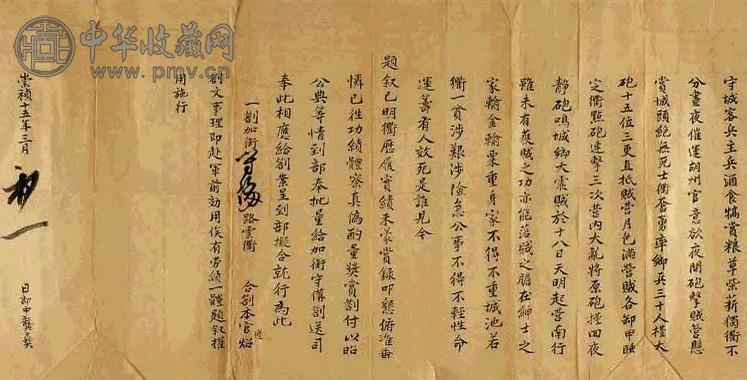 中华收藏网
www.pmv.cn
守城客兵主兵酒食犒賞糧草柴薪獨衢不
分晝夜催運胡州官意欲夜間砲擊賊營懸
賞城頭絕無死士衢奮勇率鄉兵三十人擡大
砲十五位三更直抵賊營月色滿營賊各卸甲睡
定衢點砲連擊三次營內大亂將原砲擡回夜
靜砲鳴城鄉大震賊於十八日天明起營南行
雖未有殺賊之功亦能落賊之膽在紳士之
家輸金輸粟重身家不得不重城池若
衢一貧涉艱涉險急公事不得不輕性命
運籌有人效死是誰見今
題叙已明衢歷履實績未蒙賞錄叩懇俯准垂
憐已往功績體察真偽酌量獎賞劄付以昭
公典等情到部奉批量給加銜守備劄送司
奉此相應給劄案呈到部擬合就行為此
一劄加銜守備路雲衢 合劄本官照
劄文事理即赴軍前効用俟有勞績一體題叙擢
用施行
崇禎十五年三月 初一
日郎中龔